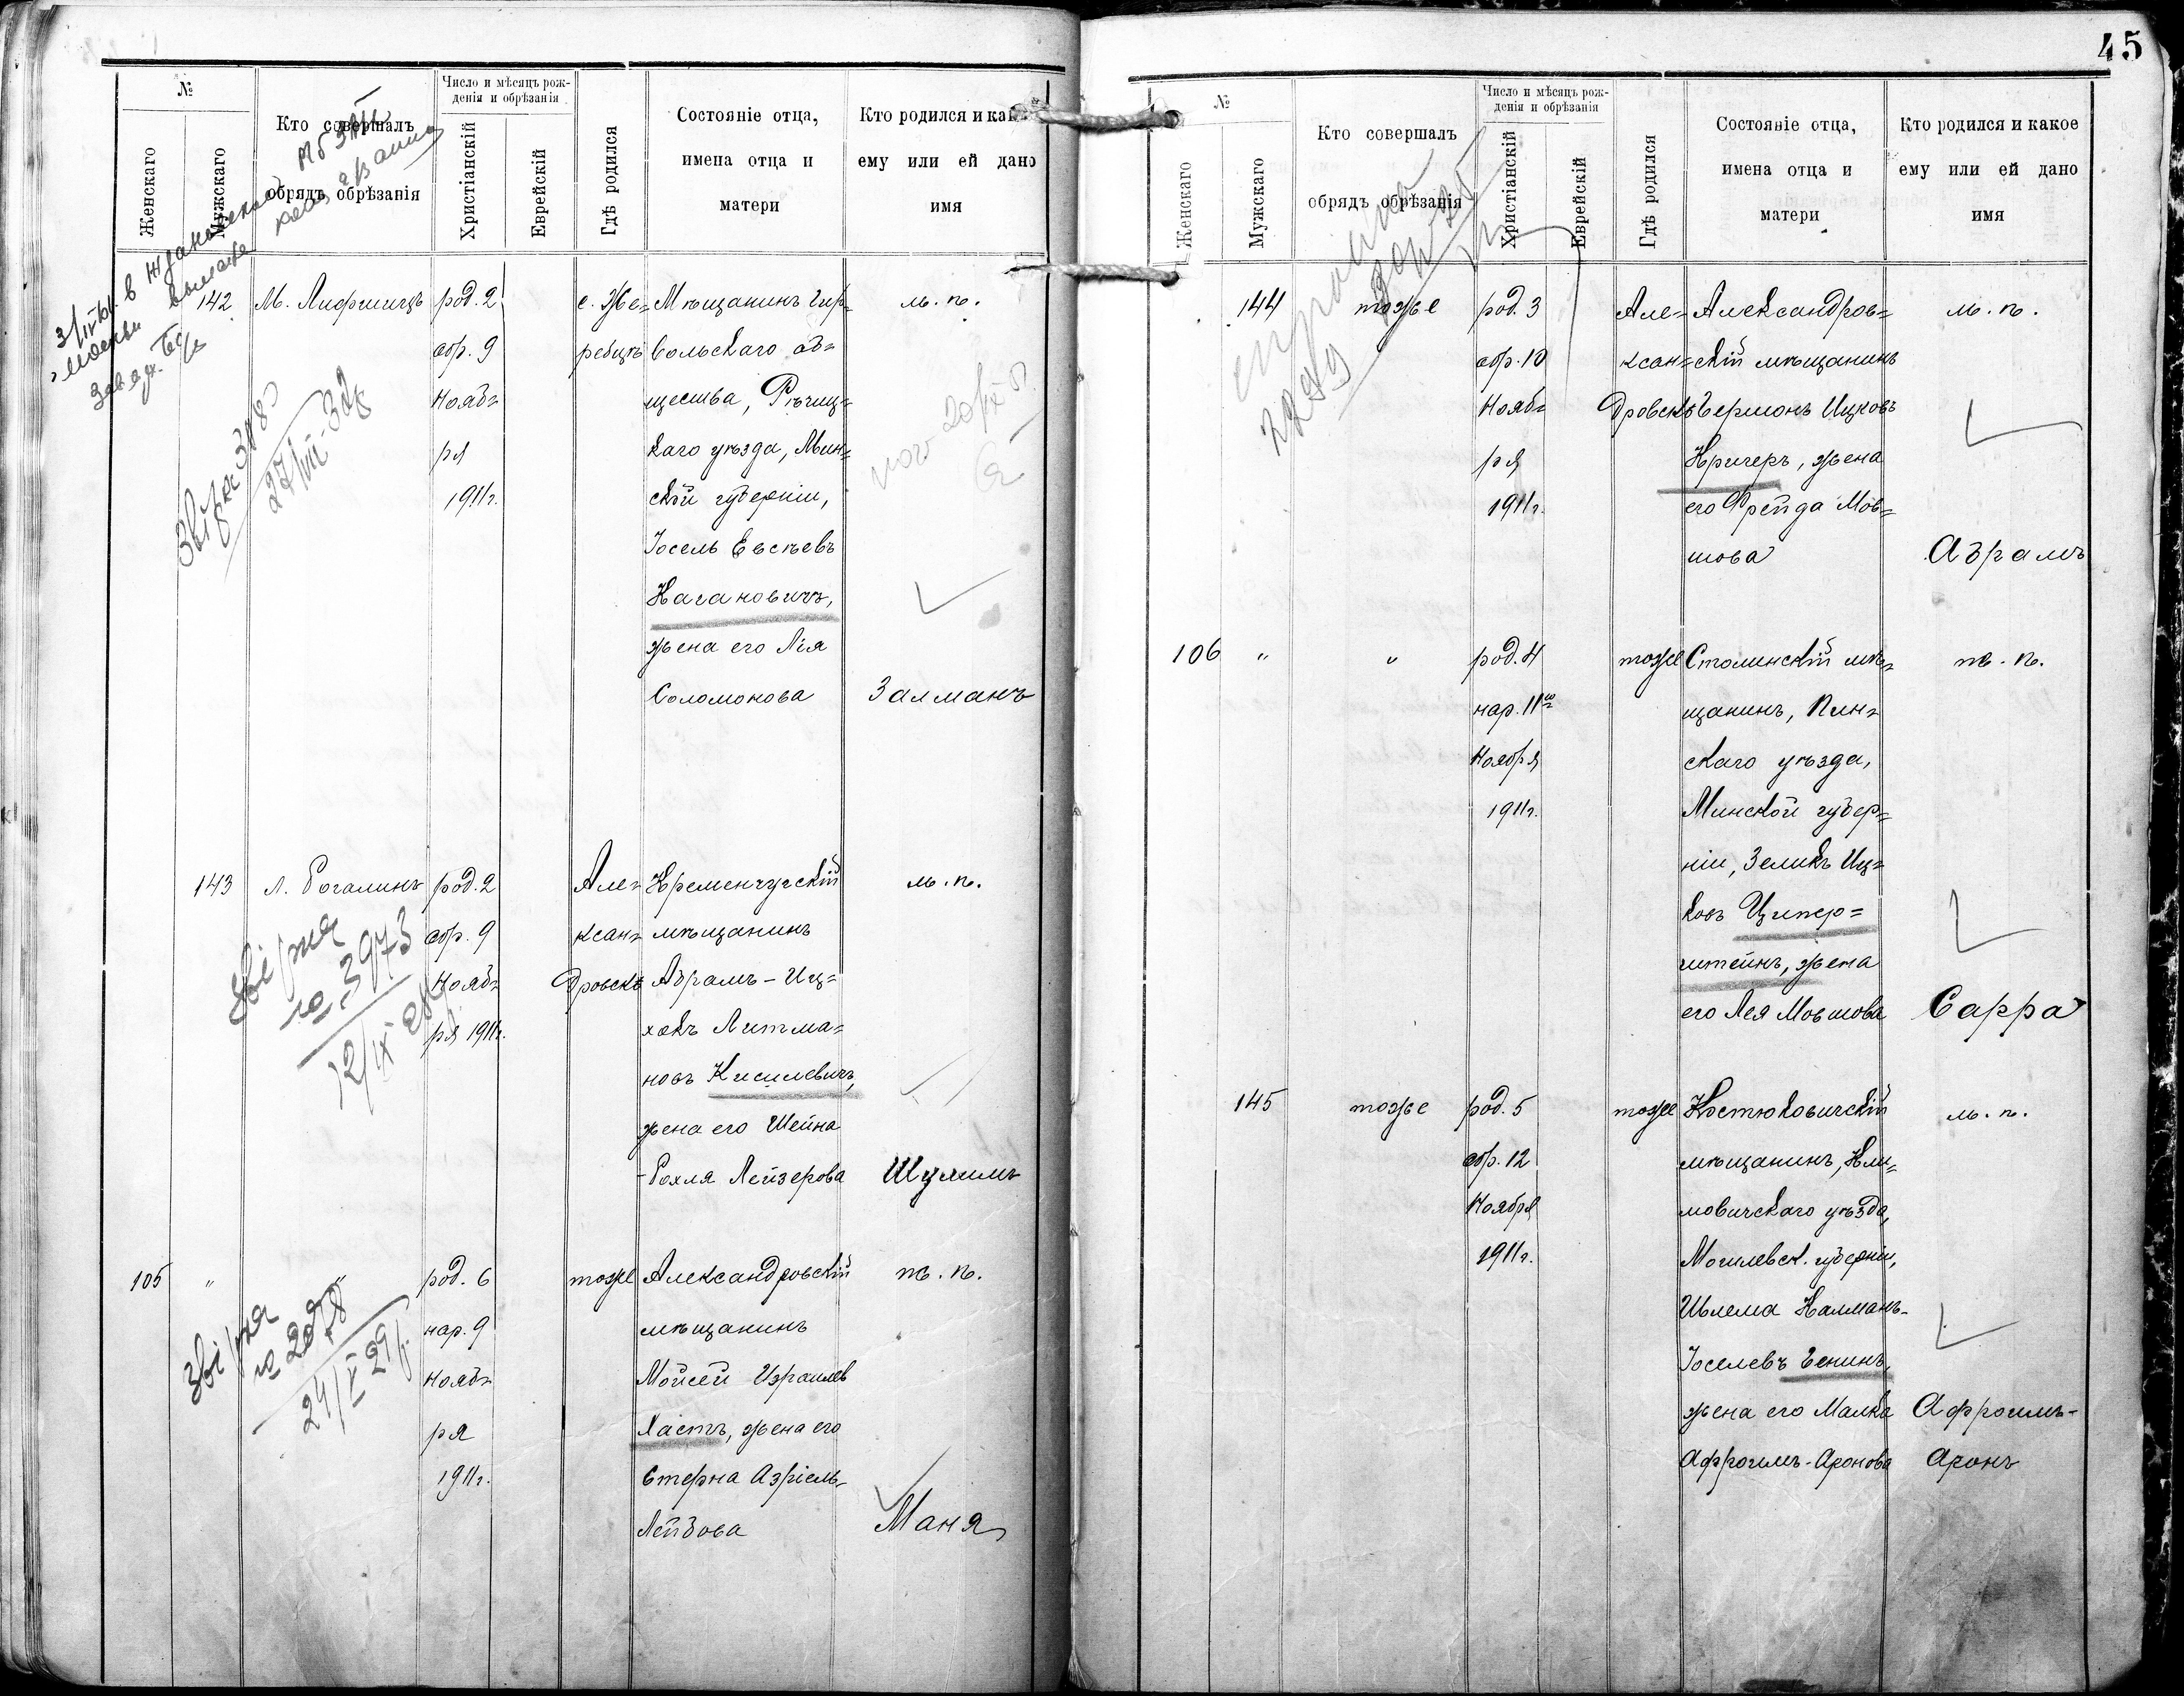 45
№
Женскаго
Мужскаго
Кто совершалъ
обрядъ обрѣзанія
Число и мѣсяцъ рож-
денія и обрѣзанія
Христіанскій
Еврейскій
Гдѣ родился
Состояніе отца,
имена отца и
матери
Кто родился и какое
ему или ей дано
имя
142
М. Лифшицъ
род. 2
обр. 9
Нояб=
ря
1911г.
с. Же=
ребцѣ
Мѣщанинъ Гор=
вольскаго об=
щества, Рѣчиц=
каго уѣзда, Мин=
ской губерніи,
Іосель Евсѣевъ
Кагановичъ,
жена его Лія
Соломонова
м. п.
Залманъ
27/VII-32
143
Л. Рогалинъ
род. 2
обр. 9
Нояб=
ря 1911г.
Але=
ксан=
дровскъ
Кременчугскій
мѣщанинъ
Абрамъ-Иц=
хокъ Литма=
новъ Кисилевичъ,
жена его Шейна
-Рохля Лейзерова
м. п.
Шулимъ
№ 3973
105
"
"
род. 6
нар. 9
Нояб=
ря
1911г.
тоже
Александровскій
мѣщанинъ
Мойсей Израилев
Хастъ, жена его
Стерна Азріель-
Лейбова
ж. п.
Маня
№
Женскаго
Мужскаго
Кто совершалъ
обрядъ обрѣзанія
Число и мѣсяцъ рож-
денія и обрѣзанія
Христіанскій
Еврейскій
Гдѣ родился
Состояніе отца,
имена отца и
матери
Кто родился и какое
ему или ей дано
имя
144
тоже
род. 3
обр. 10
Нояб=
ря
1911г.
Але=
ксан=
дровскъ
Александров=
скій мѣщанинъ
Берманъ Ицковъ
Кричеръ, жена
его Фрейда Мов=
шова
м. п.
Абрамъ
106
"
"
род. 4
нар. 11го
Ноября
1911г.
тоже
Столинскій мѣ=
щанинъ, Пин=
скаго уѣзда,
Минской губер=
ніи, Зеликъ Иц=
ковъ Ципер=
штейнъ, жена
его Лея Мовшова
ж. п.
Сарра
145
тоже
род. 5
обр. 12
Ноября
1911г.
тоже
Костюковичскій
мѣщанинъ, Кли=
мовичскаго уѣзда,
Могилевск. губерніи,
Шлема Калманъ-
Іоселевъ Генинъ,
жена его Малка
Афроимъ-Аронова
м. п.
Афроимъ-
Аронъ